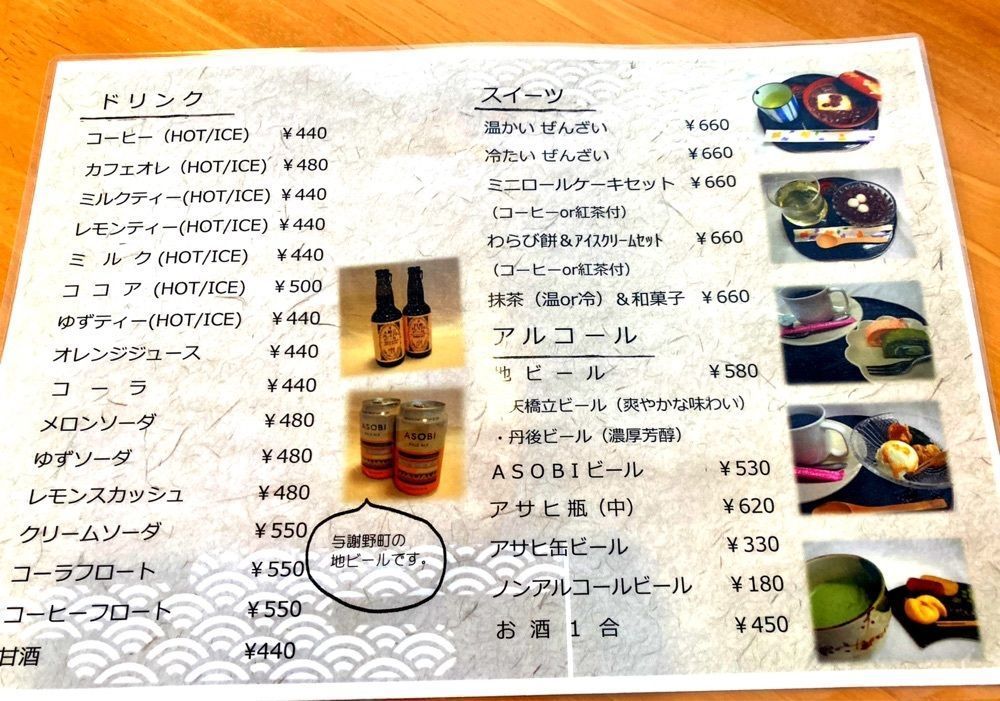 ドリンク
コーヒー (HOT/ICE) ￥440
カフェオレ (HOT/ICE) ￥480
ミルクティー(HOT/ICE) ￥440
レモンティー(HOT/ICE) ￥440
ミ ル ク (HOT/ICE) ￥440
コ コ ア (HOT/ICE) ￥500
ゆずティー(HOT/ICE) ￥440
オレンジジュース ￥440
コ ー ラ ￥440
メロンソーダ ￥480
ゆずソーダ ￥480
レモンスカッシュ ￥480
クリームソーダ ￥550
コーラフロート ￥550
コーヒーフロート ￥550
甘酒 ￥440
ASOBI
ASOBI
与謝野町の
地ビールです。
スイーツ
温かい ぜんざい ￥660
冷たい ぜんざい ￥660
ミニロールケーキセット ￥660
（コーヒーor紅茶付）
わらび餅＆ｱｲｽｸﾘｰﾑｾｯﾄ ￥660
（コーヒーor紅茶付）
抹茶（温or冷）＆和菓子 ￥660
アルコール
地 ビ ー ル ￥580
天橋立ビール（爽やかな味わい）
・丹後ビール（濃厚芳醇）
ＡＳＯＢＩビール ￥530
ア サ ヒ 瓶（中） ￥620
アサヒ缶ビール ￥330
ノンアルコールビール ￥180
お 酒 1 合 ￥450